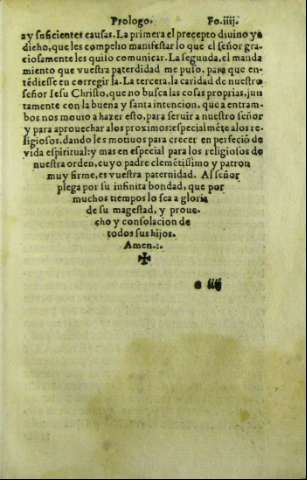 Prologo. Fo.iiij.
ay suficientes causas. La primera el precepto diuino ya
dicho, que les compelio manifestar lo que el señor gra-
ciosamente les quiso comunicar. La segunda, el manda
miento que vuestra paterdidad me puso, para que en-
tēdiesse en corregir la. La tercera, la caridad de nuestro
señor Iesu Christo, que no busca las cosas proprias, jun
tamente con la buena y santa intencion, que a entram-
bos nos mouio a hazer esto, para seruir a nuestro señor
y para aprouechar a los proximos: especialmēte a los re-
ligiosos, dando les motiuos para crecer en perfeciō de
vida espiritual: y mas en especial para los religiosos de
nuestra orden, cuyo padre clemētissimo y patron
muy firme, es vuestra paternidad. Al señor
plega por su infinita bondad, que por
muchos tiempos lo sea a gloria
de su magestad, y proue-
cho y consolacion de
todos sus hijos.
Amen.:.
✠
iiij